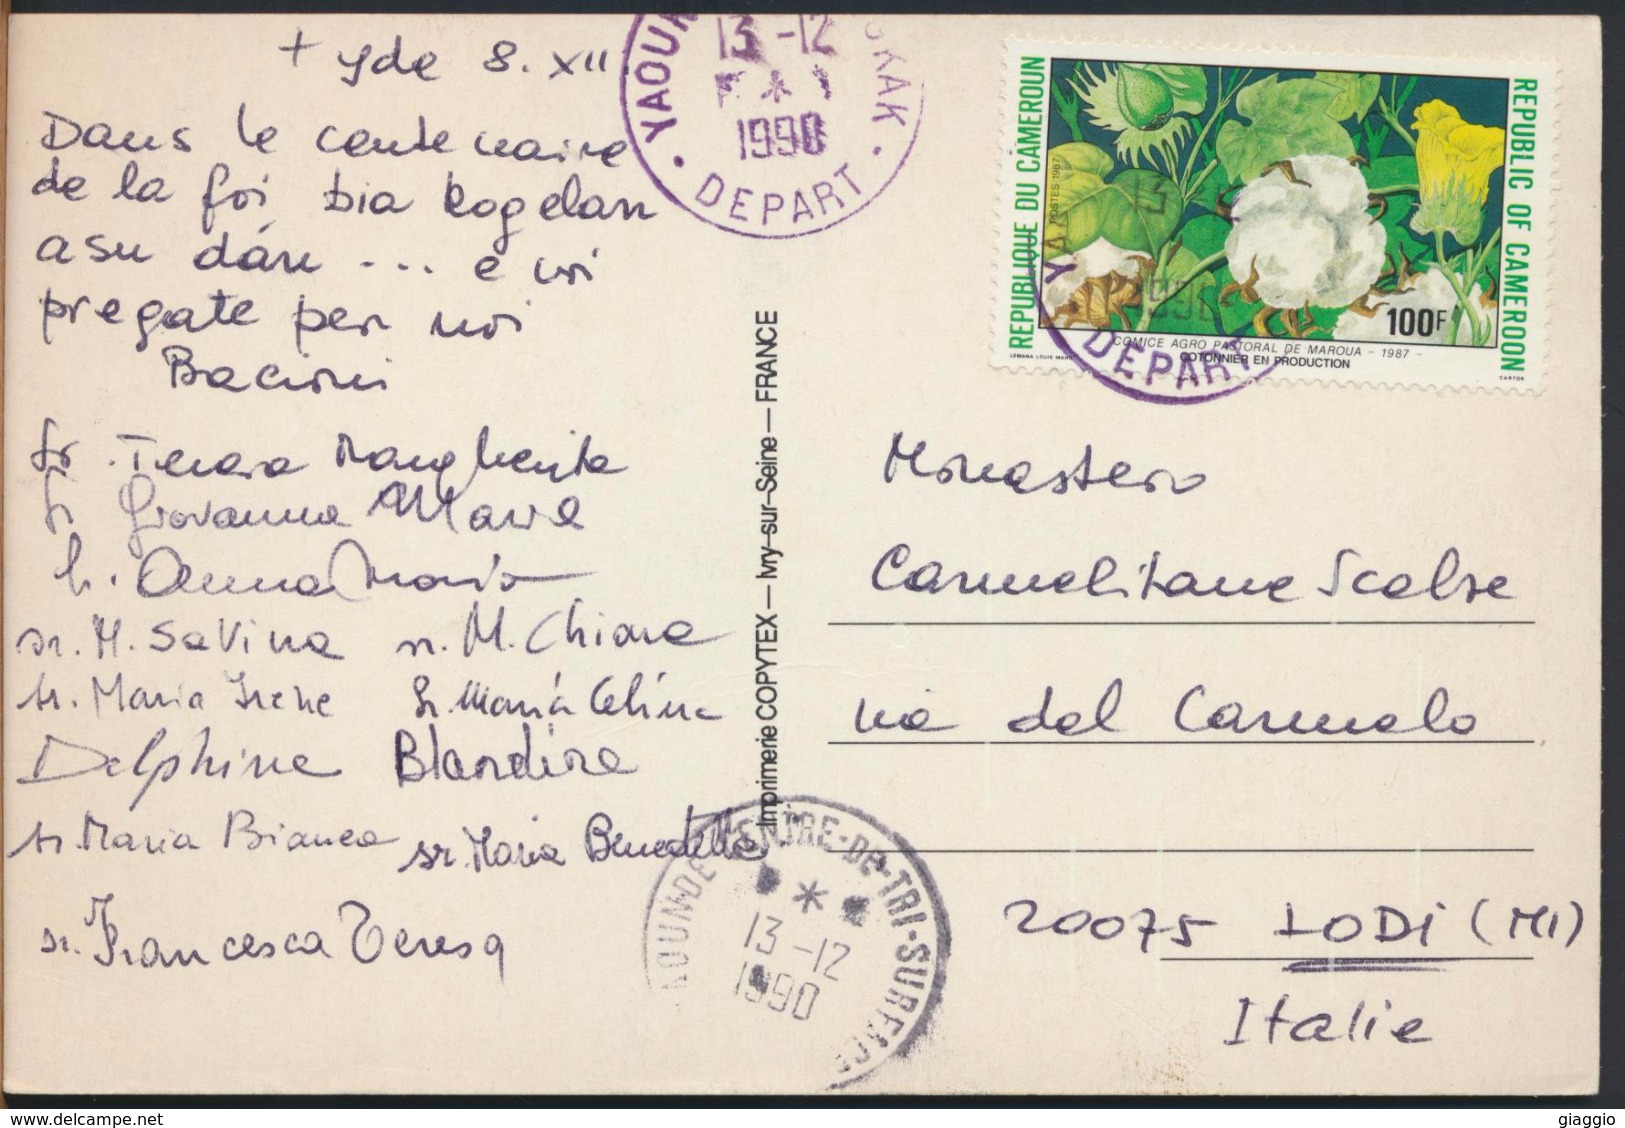 + Yde 8. XII.
Dans le centenaire
de la foi bia kogelan
asu dán ... e voi
pregate per noi
Bacioni
Sr. Teresa Margherita
Sr Giovanna Marie
Sr. Anna Maria
sr. M. Savina sr. M. Chiara
sr. Maria Irene Sr. Maria Celina
Delphine Blandine
sr. Maria Bianca sr. Maria Benedetta
sr. Francesca Teresa
YAOUN KAK
13-12
*
1990
• DEPART •
Imprimerie COPYTEX — Ivry-sur-Seine — FRANCE
REPUBLIQUE DU CAMEROUN
POSTES 1987
REPUBLIC OF CAMEROON
100F
COMICE AGRO PASTORAL DE MAROUA - 1987 -
COTONNIER EN PRODUCTION
LEMANA LOUIS MARIE
CARTOR
YA
13
1990
DEPART
Monastero
Carmelitane Scalze
via del Carmelo
20075 LODI (MI)
Italie
YAOUNDE CENTRE-DE-TRI-SURFACE
*
13-12
1990
delcampe.net
giaggio